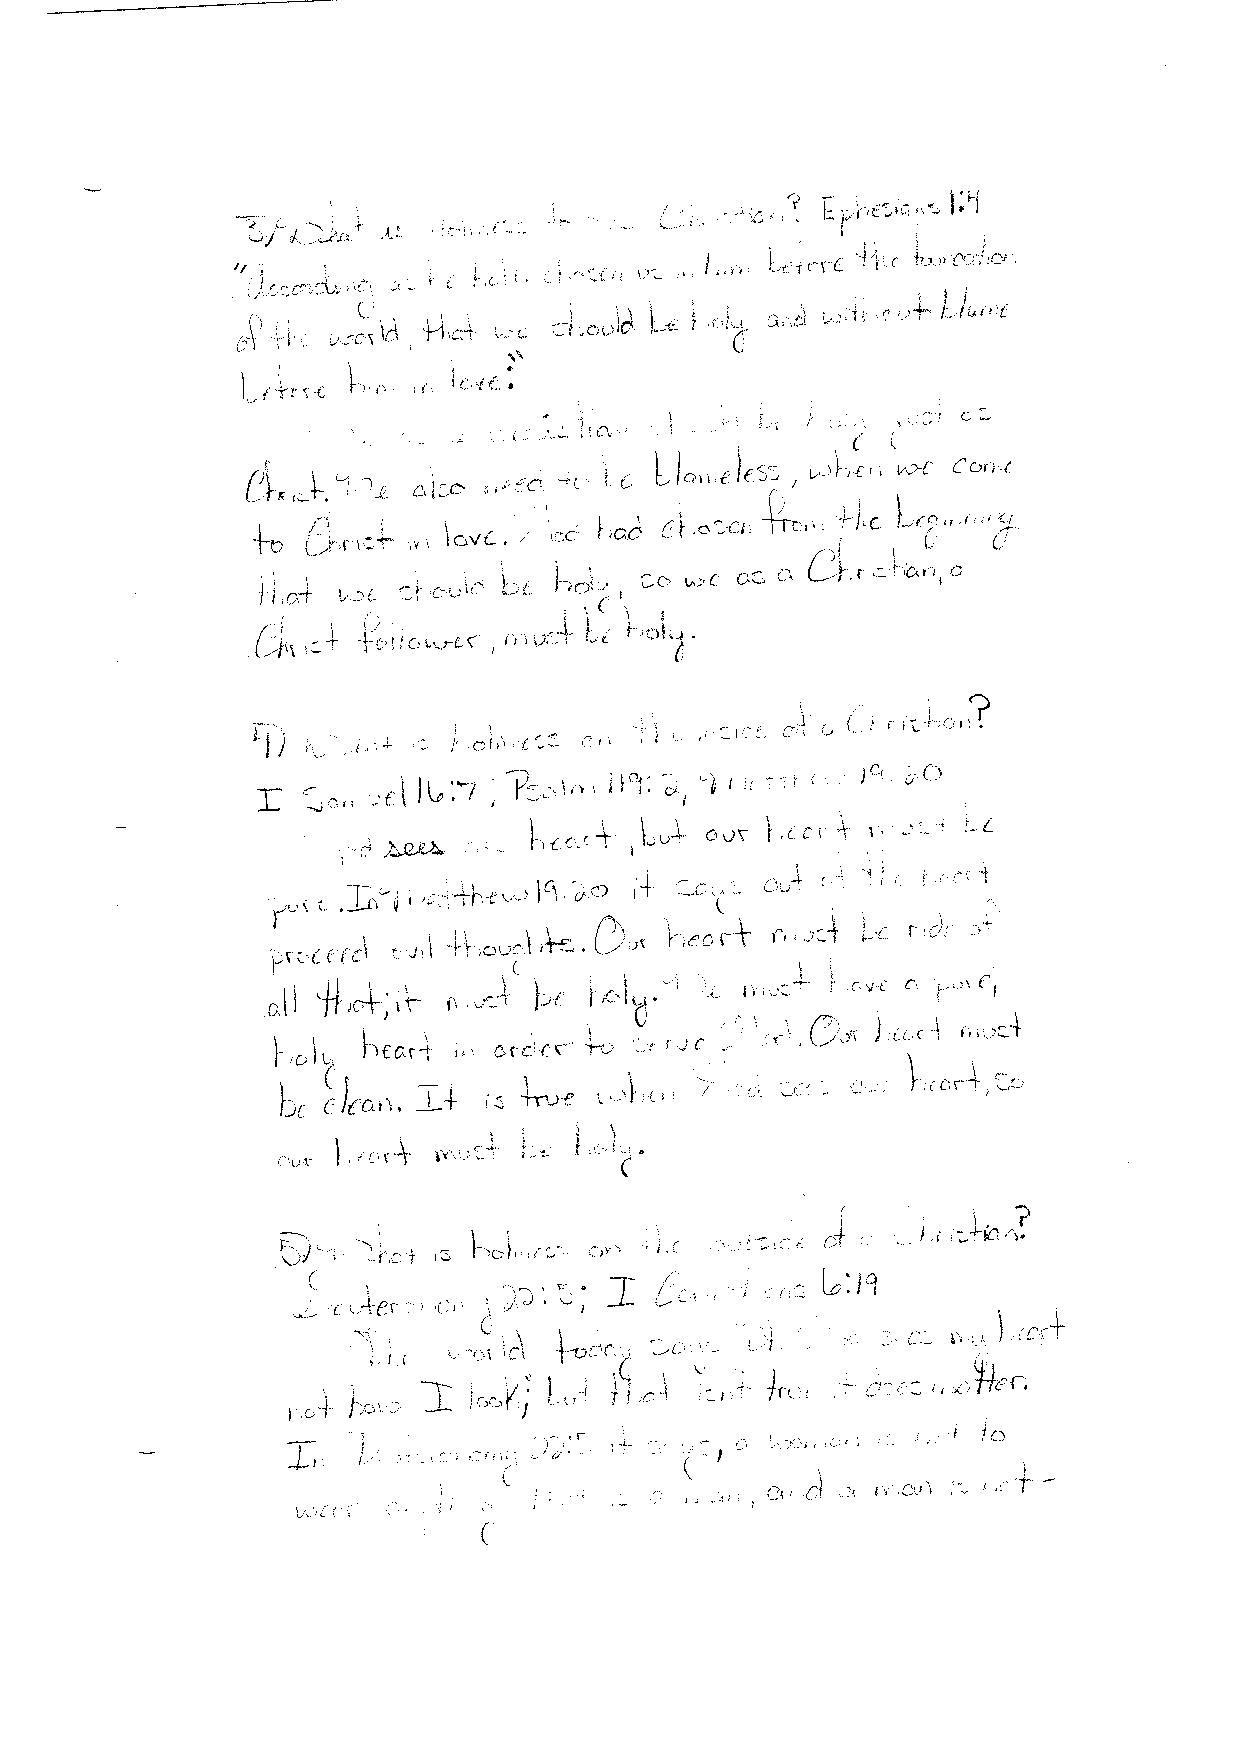 3) What is Holiness to a Christian? Ephesians 1:4
"According as he hath chosen us in him before the foundation
of the world, that we should be holy and without blame
before him in love."
Christian should be holy just as
Christ. We also need to be blameless, when we come
to Christ in love. God had chosen from the beginning
that we should be holy, so we as a Christian, a
Christ follower, must be holy.
4) What is holiness on the inside of a Christian?
I Samuel 16:7; Psalm 119:2, Matthew 19:20
God sees our heart, but our heart must be
pure. In Matthew 19:20 it says out of the heart
proceed evil thoughts. Our heart must be ride of
all that; it must be holy. We must have a pure,
holy heart in order to serve God. Our heart must
be clean. It is true when God sees our heart, so
our heart must be holy.
5) What is holiness on the outside of a Christian?
Deuteronomy 22:5; I Corinthians 6:19
The world today says sees my heart
not how I look; but that isn't true it does matter.
In Deuteronomy 22:5 it says, a woman is not to
wear of a man, and a man is not -